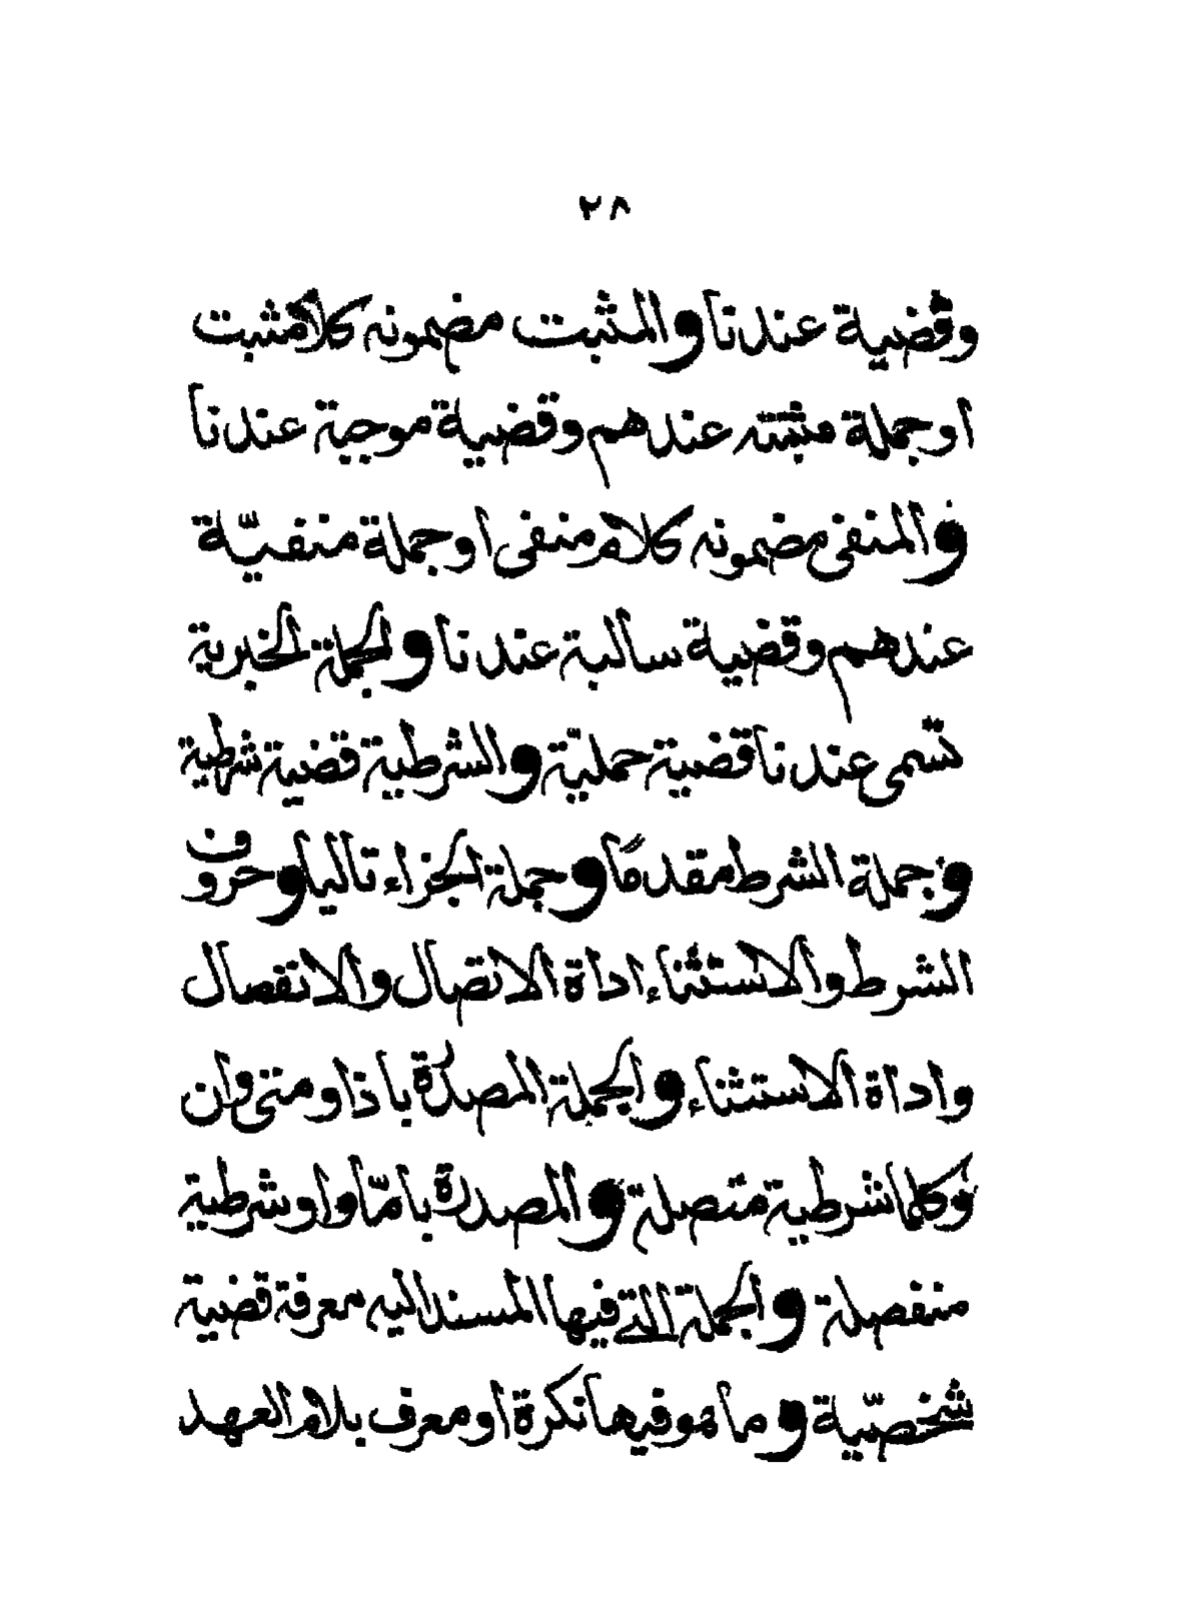 ٢٨
وقضية عندنا والمثبت مضمونه كلام مثبت
او جملة مثبتة عندهم وقضية موجبة عندنا
والمنفى مضمونه كلام منفى او جملة منفيّة
عندهم وقضية سالبة عندنا والجملة الخبرية
تسمى عندنا قضية حمليّة والشرطية قضية شرطية
وجملة الشرط مقدمًا وجملة الجزاء تاليا وحروف
الشرط والاستثناء اداة الاتصال والانفصال
واداة الاستثناء والجملة المصدرة باذا ومتى وان
وكلما شرطية متصلة والمصدرة بامّا واو شرطية
منفصلة والجملة التي فيها المسند اليه معرفة قضية
شخصيّة وما هو فيها نكرة او معرف بلام العهد